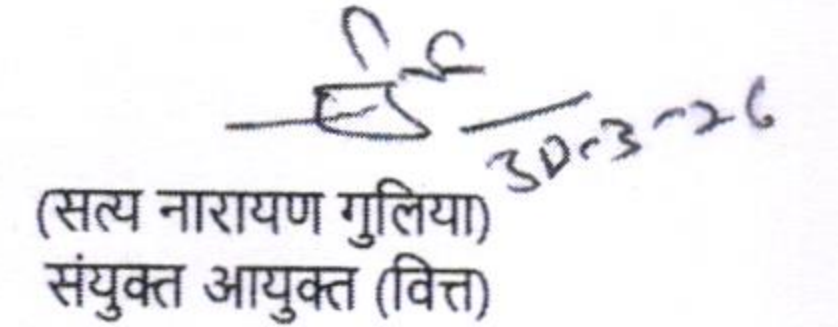 30-3-26
(सत्य नारायण गुलिया)
संयुक्त आयुक्त (वित्त)